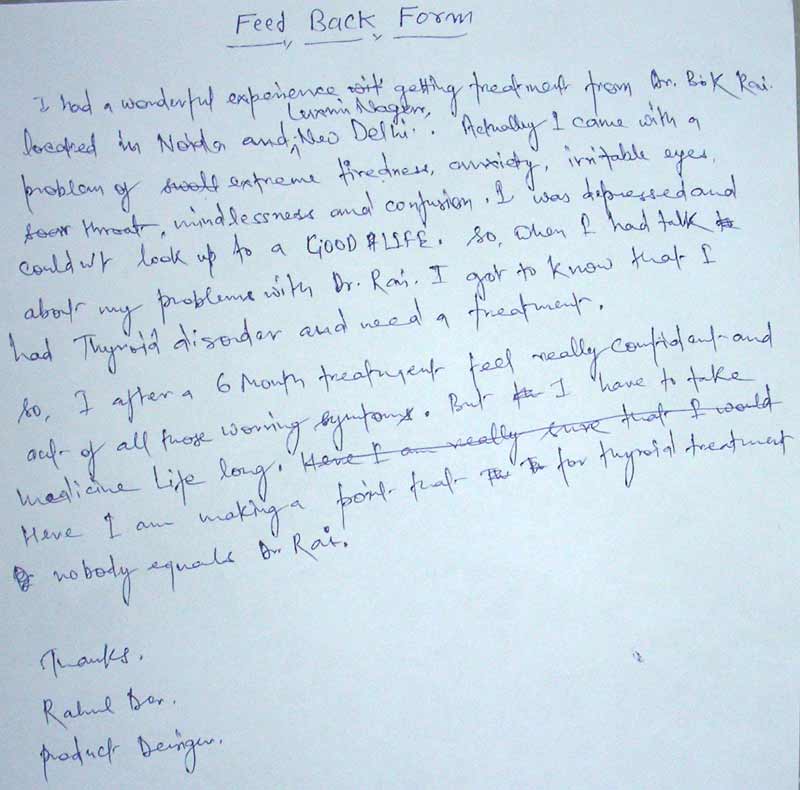 Feed Back Form
I had a wonderful experience getting treatment from Dr. B.K Rai.
Luxmi Nagar,
located in Noida and, New Delhi. Actually I came with a
problem of extreme tiredness, anxiety, irritable eyes,
throat, mindlessness and confusion. I was depressed and
could n't look up to a GOOD LIFE. So, when I had talk
about my problems with Dr. Rai. I got to know that I
had Thyroid disorder and need a treatment.
So, I after a 6 Month treatment feel really confidant and
out of all those worring symptoms. But I have to take
medicine Life long. Here I am really sure that I would
Here I am making a point that for thyroid treatment
nobody equals Dr. Rai.
Thanks.
Rahul
Product